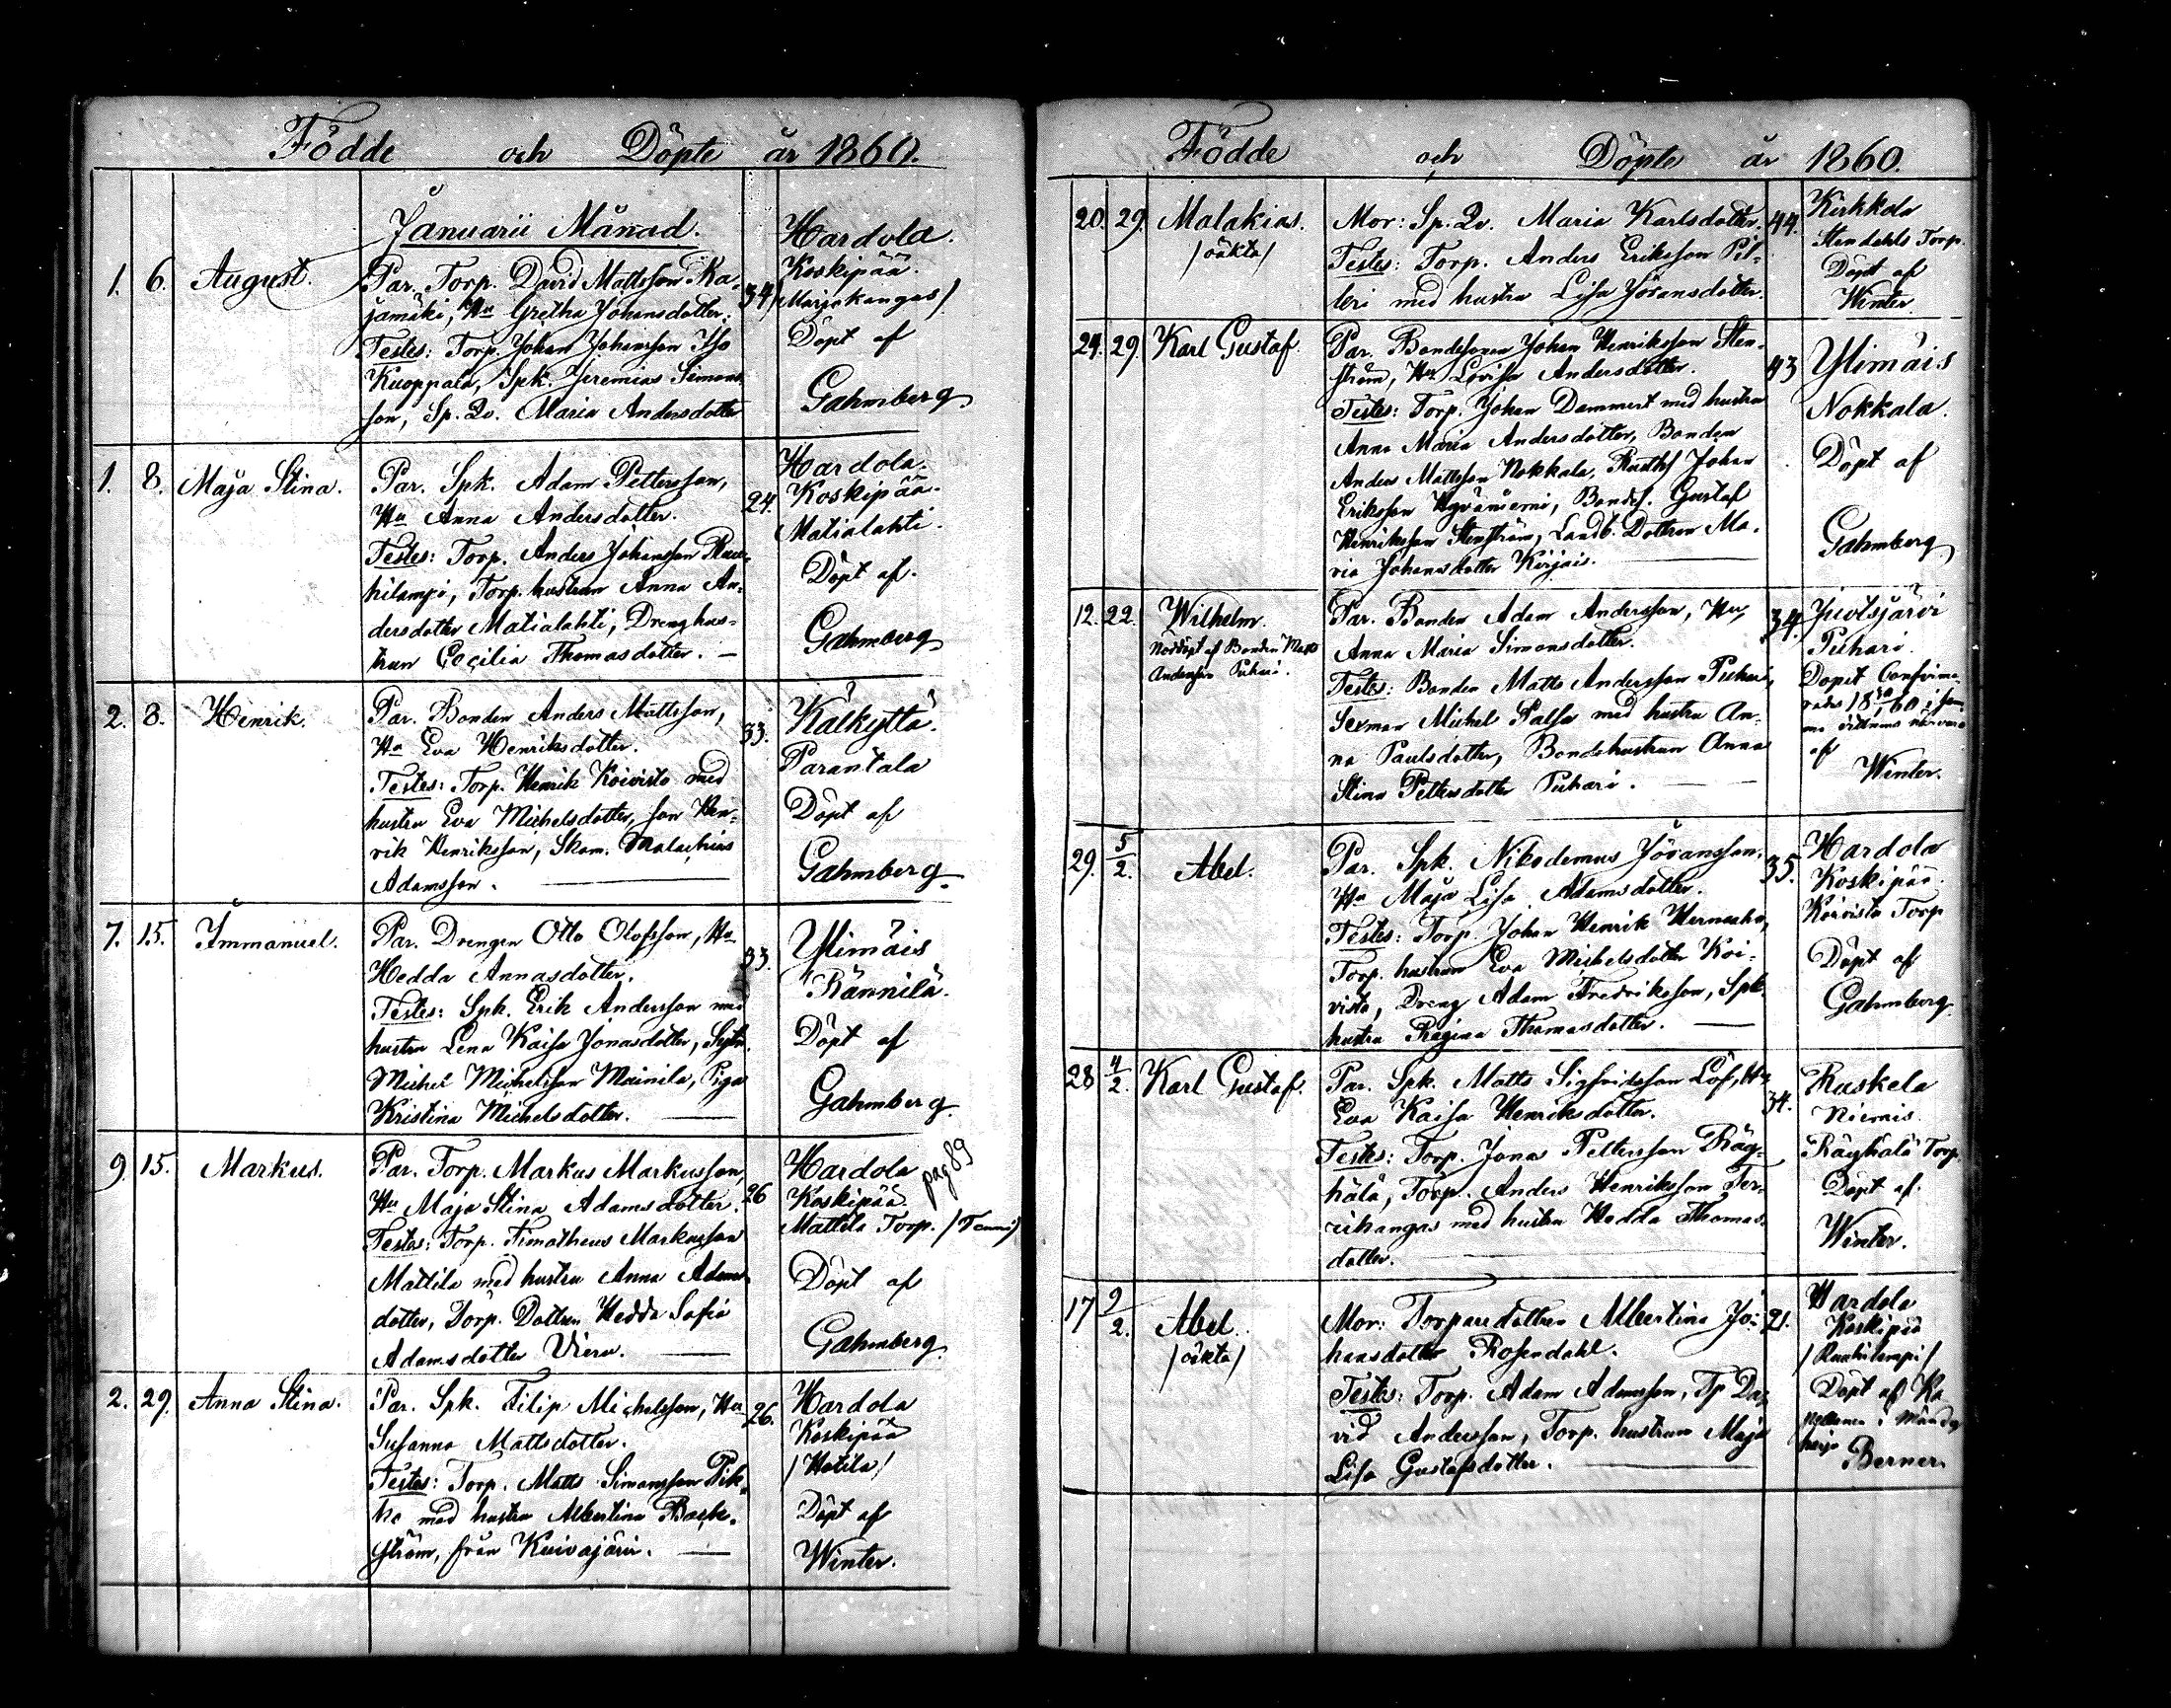 Födde och Döpte år 1860.
Januarii Månad.
1. 6. August.
Par. Torp. David Mattsson Ka-
jamäki, Hu Gretha Johansdotter.
Testes: Torp. Johan Johansson Iso
Kuoppala, Spk. Jeremias Simons-
son, Sp. Qv. Maria Andersdotter
34
Hardola.
Koskipää.
/Marjakangas/
Döpt af
Gahmberg
1. 8. Maja Stina.
Par. Spk. Adam Pettersson,
Hu Anna Andersdotter.
Testes: Torp. Anders Johansson Rau-
hilampi, Torp. hustrun Anna An-
dersdotter Matialahti, Dränghus-
trun Cecilia Thomasdotter. —
24.
Hardola.
Koskipää.
Matialahti.
Döpt af.
Gahmberg
2. 8. Henrik.
Par. Bonden Anders Mattsson,
Hu Eva Henriksdotter.
Testes: Torp. Henrik Koivisto med
hustru Eva Michelsdotter, son Hen-
rik Henriksson, Skom. Malachias
Adamsson.
33.
Kälkyttä.
Parantala
Döpt af
Gahmberg
7. 15. Immanuel.
Par. Drengen Otto Olofsson, Hu
Hedda Annasdotter.
Testes: Spk. Erik Andersson med
hustru Lena Kaisa Jonasdotter,
Michel Michelsson Mainila, Piga
Kristina Michelsdotter.
33.
Ylimäis
Rännilä.
Döpt af
Gahmberg.
9. 15. Markus.
Par. Torp. Markus Markusson,
Hu Maja Stina Adamsdotter.
Testes: Torp. Timotheus Markusson
Mattila med hustru Anna Adams-
dotter, Torp. Dottren Hedda Sofia
Adamsdotter Vieru.
26
Hardola pag 89
Koskipää.
Mattila Torp.
Döpt af
Gahmberg
2. 29. Anna Stina.
Par. Spk. Filip Michelsson, Hu
Susanna Mattsdotter.
Testes: Torp. Matts Simonsson Pik-
ke med hustru Albertina Back-
ström, från Kuivajärvi.
26.
Hardola
Koskipää
/Hotila/
Döpt af
Winter.
Födde och Döpte år 1860.
20. 29. Malakias.
/oäkta/
Mor: Sp. Qv. Maria Karlsdotter.
Testes: Torp. Anders Eriksson Pit-
leri med hustru Lisa Jöransdotter.
44.
Kirkkola
Stendahls Torp.
Döpt af
Winter.
24. 29. Karl Gustaf.
Par. Bondesonen Johan Henriksson Sten-
ström, Hu Lovisa Andersdotter.
Testes: Torp. Johan Dammert med hustru
Anna Maria Andersdotter, Bonden
Anders Mattsson Nokkala, Johan
Eriksson Bondes. Gustaf
Henriksson Stenström, Landb. Dottren Ma-
ria Johansdotter Kirjais.
43
Ylimäis
Nokkala.
Döpt af
Gahmberg
12. 22. Wilhelm.
Nöddöpt af Bonden Matts
Andersson Puhari.
Par. Bonden Adam Andersson, Hu
Anna Maria Simonsdotter.
Testes: Bonden Matts Andersson Puhari,
Sexman Michel Palsa med hustru An-
na Paulsdotter, Bondehustrun Anna
Stina Pettersdotter Puhari.
34.
Jivotsjärvi
Puhari.
Dopet Confirme-
rades
af
Winter.
29. 5/2. Abel.
Par. Spk. Nikodemus Jöransson,
Hu Maja Lisa Adamsdotter.
Testes: Torp. Johan Henrik Hernesaho,
Torp. hustrun Eva Michelsdotter Koi-
visto, Dreng Adam Fredriksson, Spk.
hustru Regina Thomasdotter.
35.
Hardola
Koskipää.
Koivisto Torp
Döpt af
Gahmberg
28 4/2. Karl Gustaf.
Par. Spk. Matts Sigfridsson Löf, Hu
Eva Kaisa Henriksdotter.
Testes: Torp. Jonas Pettersson Räy-
hälä, Torp. Anders Henriksson Ter-
vikangas med hustru Hedda Thomas-
dotter.
34.
Raskela
Niemis.
Räyhälä Torp.
Döpt af
Winter.
17 9/2. Abel.
/oäkta/
Mor: Torparedottren Albertina Jo-
hansdotter Rosendahl.
Testes: Torp. Adam Adamsson, Tp Da-
vid Andersson, Torp. hustrun Maja
Lisa Gustafsdotter.
21.
Hardola
Koskipää
/Rauhilampi/
Döpt af Ka-
pellanen i Mänty-
harju
Berner.